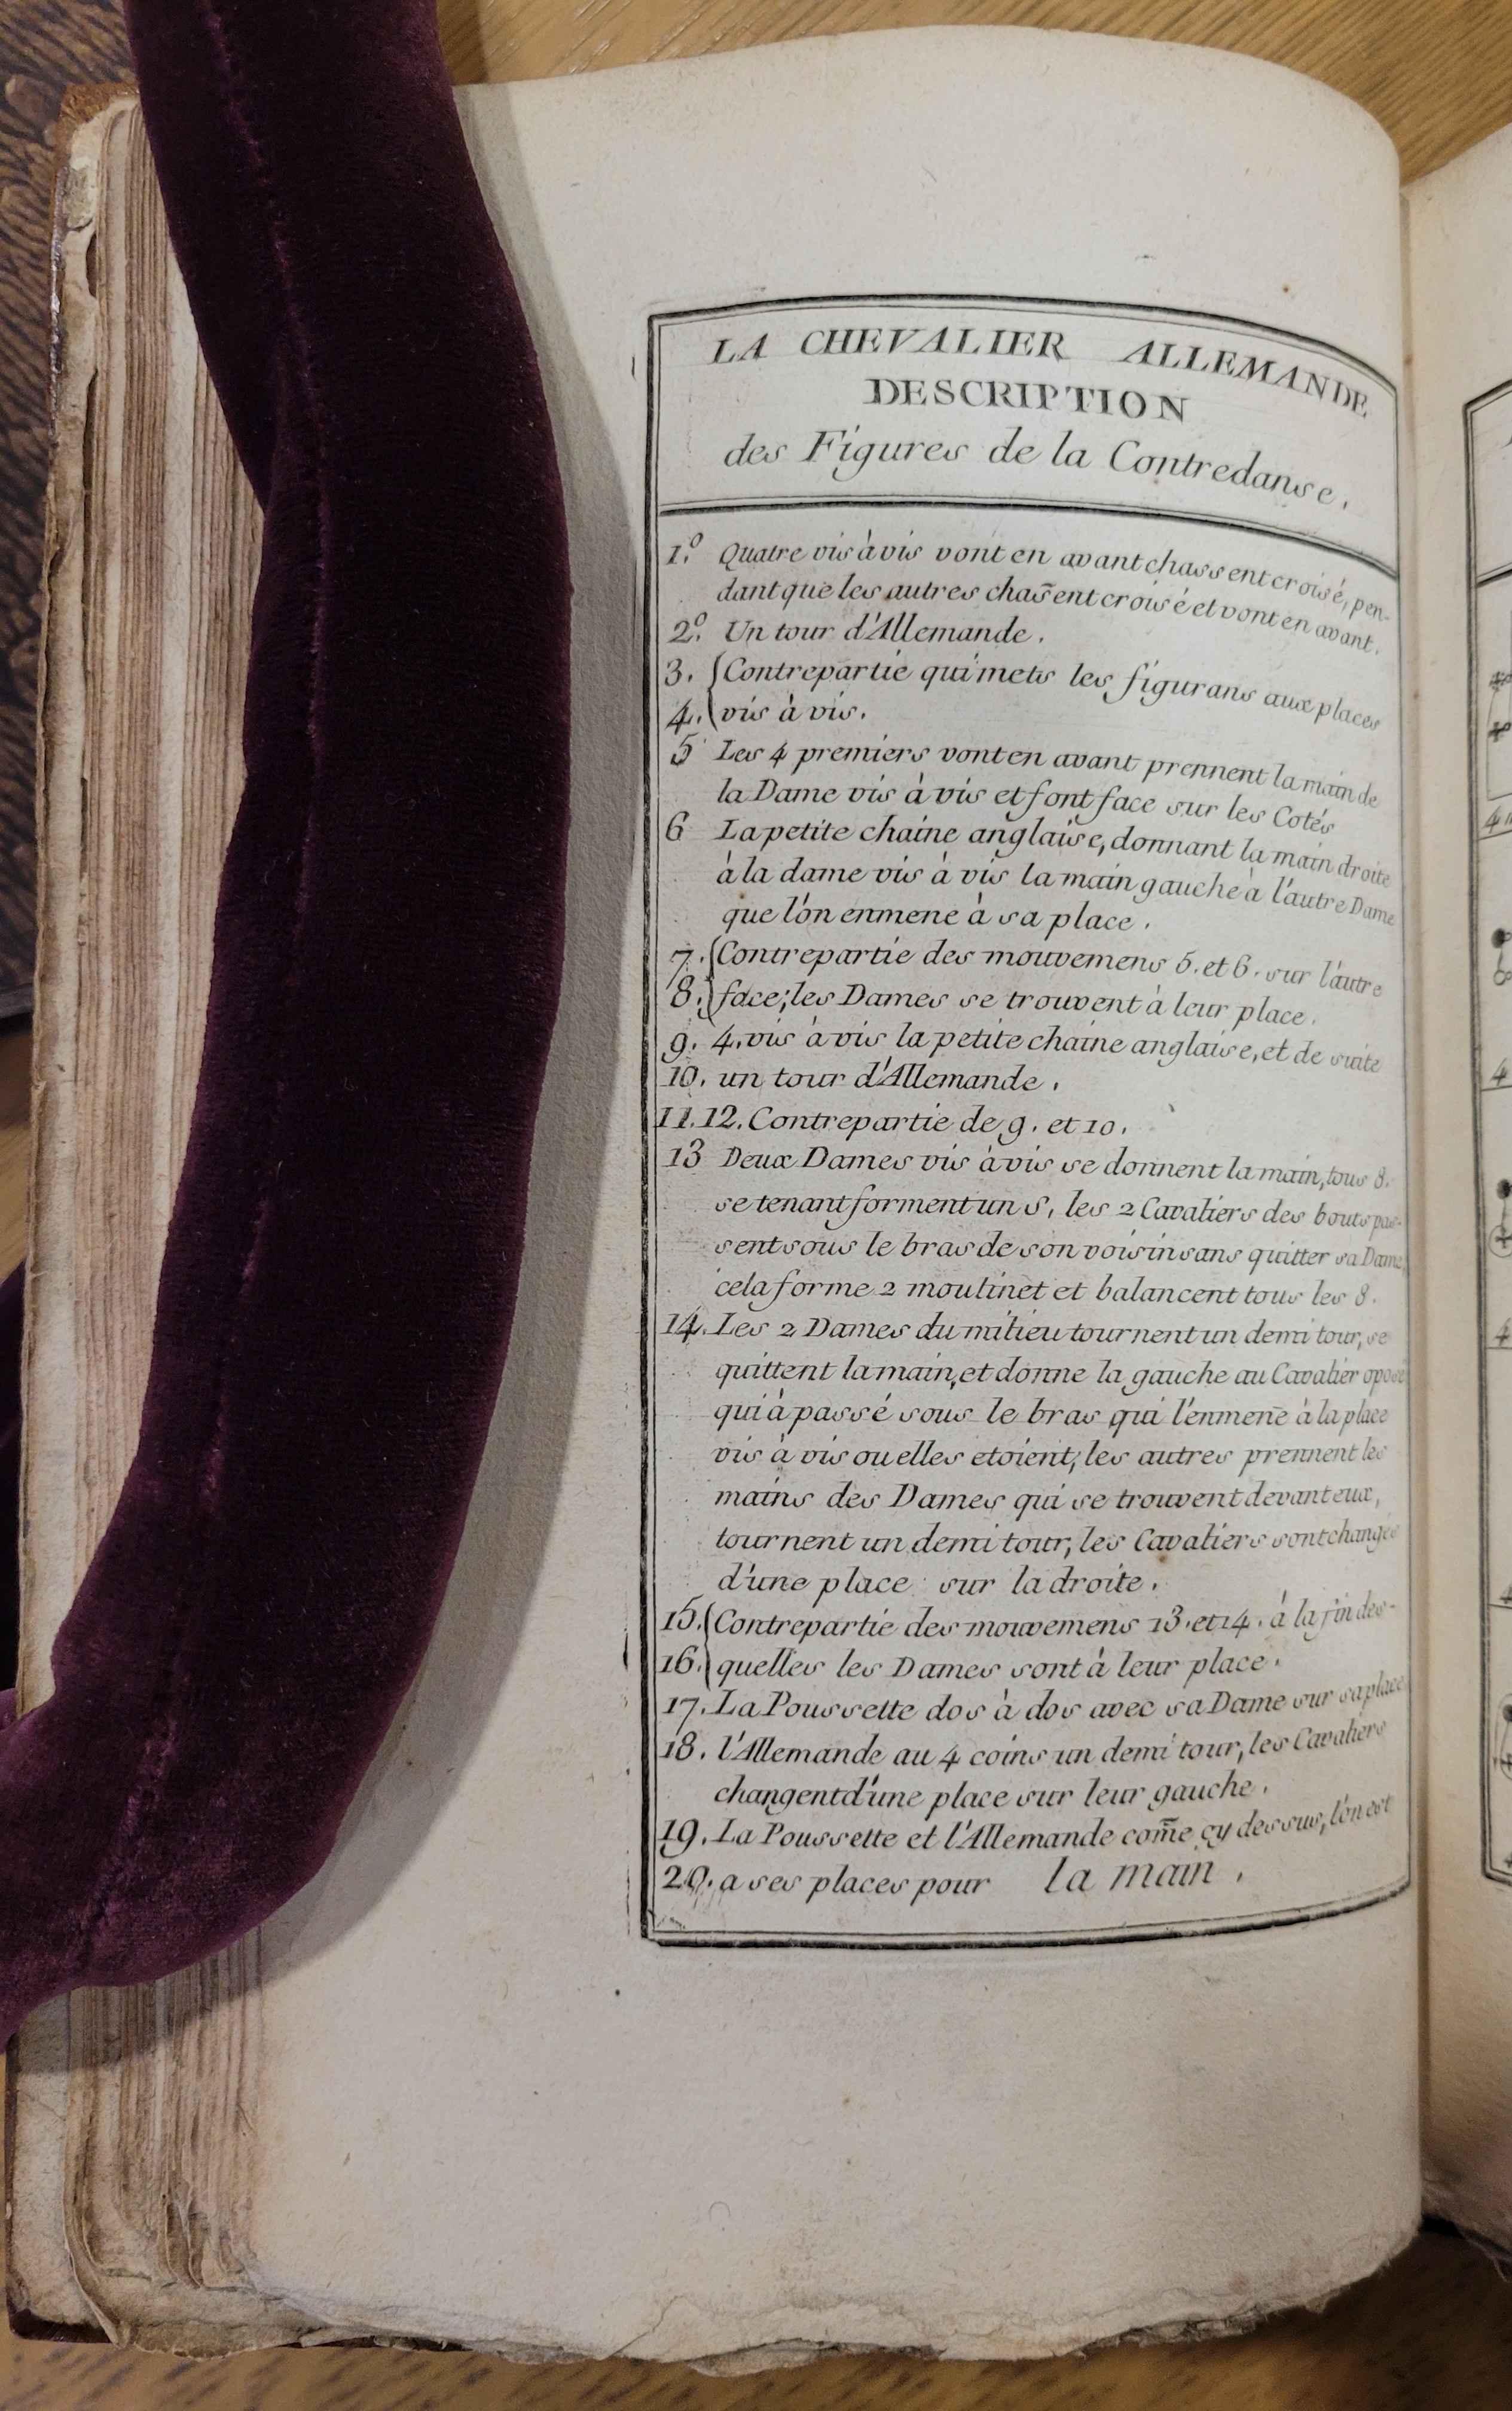 LA CHEVALIER ALLEMANDE
DESCRIPTION
des Figures de la Contredanse.
1.º Quatre vis à vis vont en avant chassent croisé, pen-
dant que les autres chas̃ent croisé et vont en avant.
2.º Un tour d'Allemande.
3. {Contrepartie qui mets les figurans aux places
4. {vis à vis.
5 Les 4 premiers vont en avant prennent la main de
la Dame vis à vis et font face sur les Cotés
6 La petite chaine anglaise, donnant la main droite
à la dame vis à vis la main gauche à l'autre Dame
que l'on enmene à sa place.
7. {Contrepartie des mouvemens 5. et 6. sur l'autre
8. {face; les Dames se trouvent à leur place.
9. 4. vis à vis la petite chaine anglaise, et de suite
10. un tour d'Allemande.
11. 12. Contrepartie de 9. et 10.
13 Deux Dames vis à vis se donnent la main, tous 8.
se tenant forment un S, les 2 Cavaliers des bouts pas-
sent sous le bras de son voisin sans quitter sa Dame,
cela forme 2 moulinet et balancent tous les 8.
14. Les 2 Dames du milieu tournent un demi tour, se
quittent la main, et donne la gauche au Cavalier oposé
qui à passé sous le bras qui l'enmene à la place
vis à vis ou elles etoient, les autres prennent les
mains des Dames qui se trouvent devant eux,
tournent un demi tour, les Cavaliers sont changés
d'une place sur la droite.
15. {Contrepartie des mouvemens 13. et 14. à la fin des-
16. {quelles les Dames sont à leur place.
17. La Poussette dos à dos avec sa Dame sur sa place
18. l'Allemande au 4 coins un demi tour, les Cavaliers
changent d'une place sur leur gauche.
19. La Poussette et l'Allemande com̃e cy dessus, l'on est
20. a ses places pour la main.